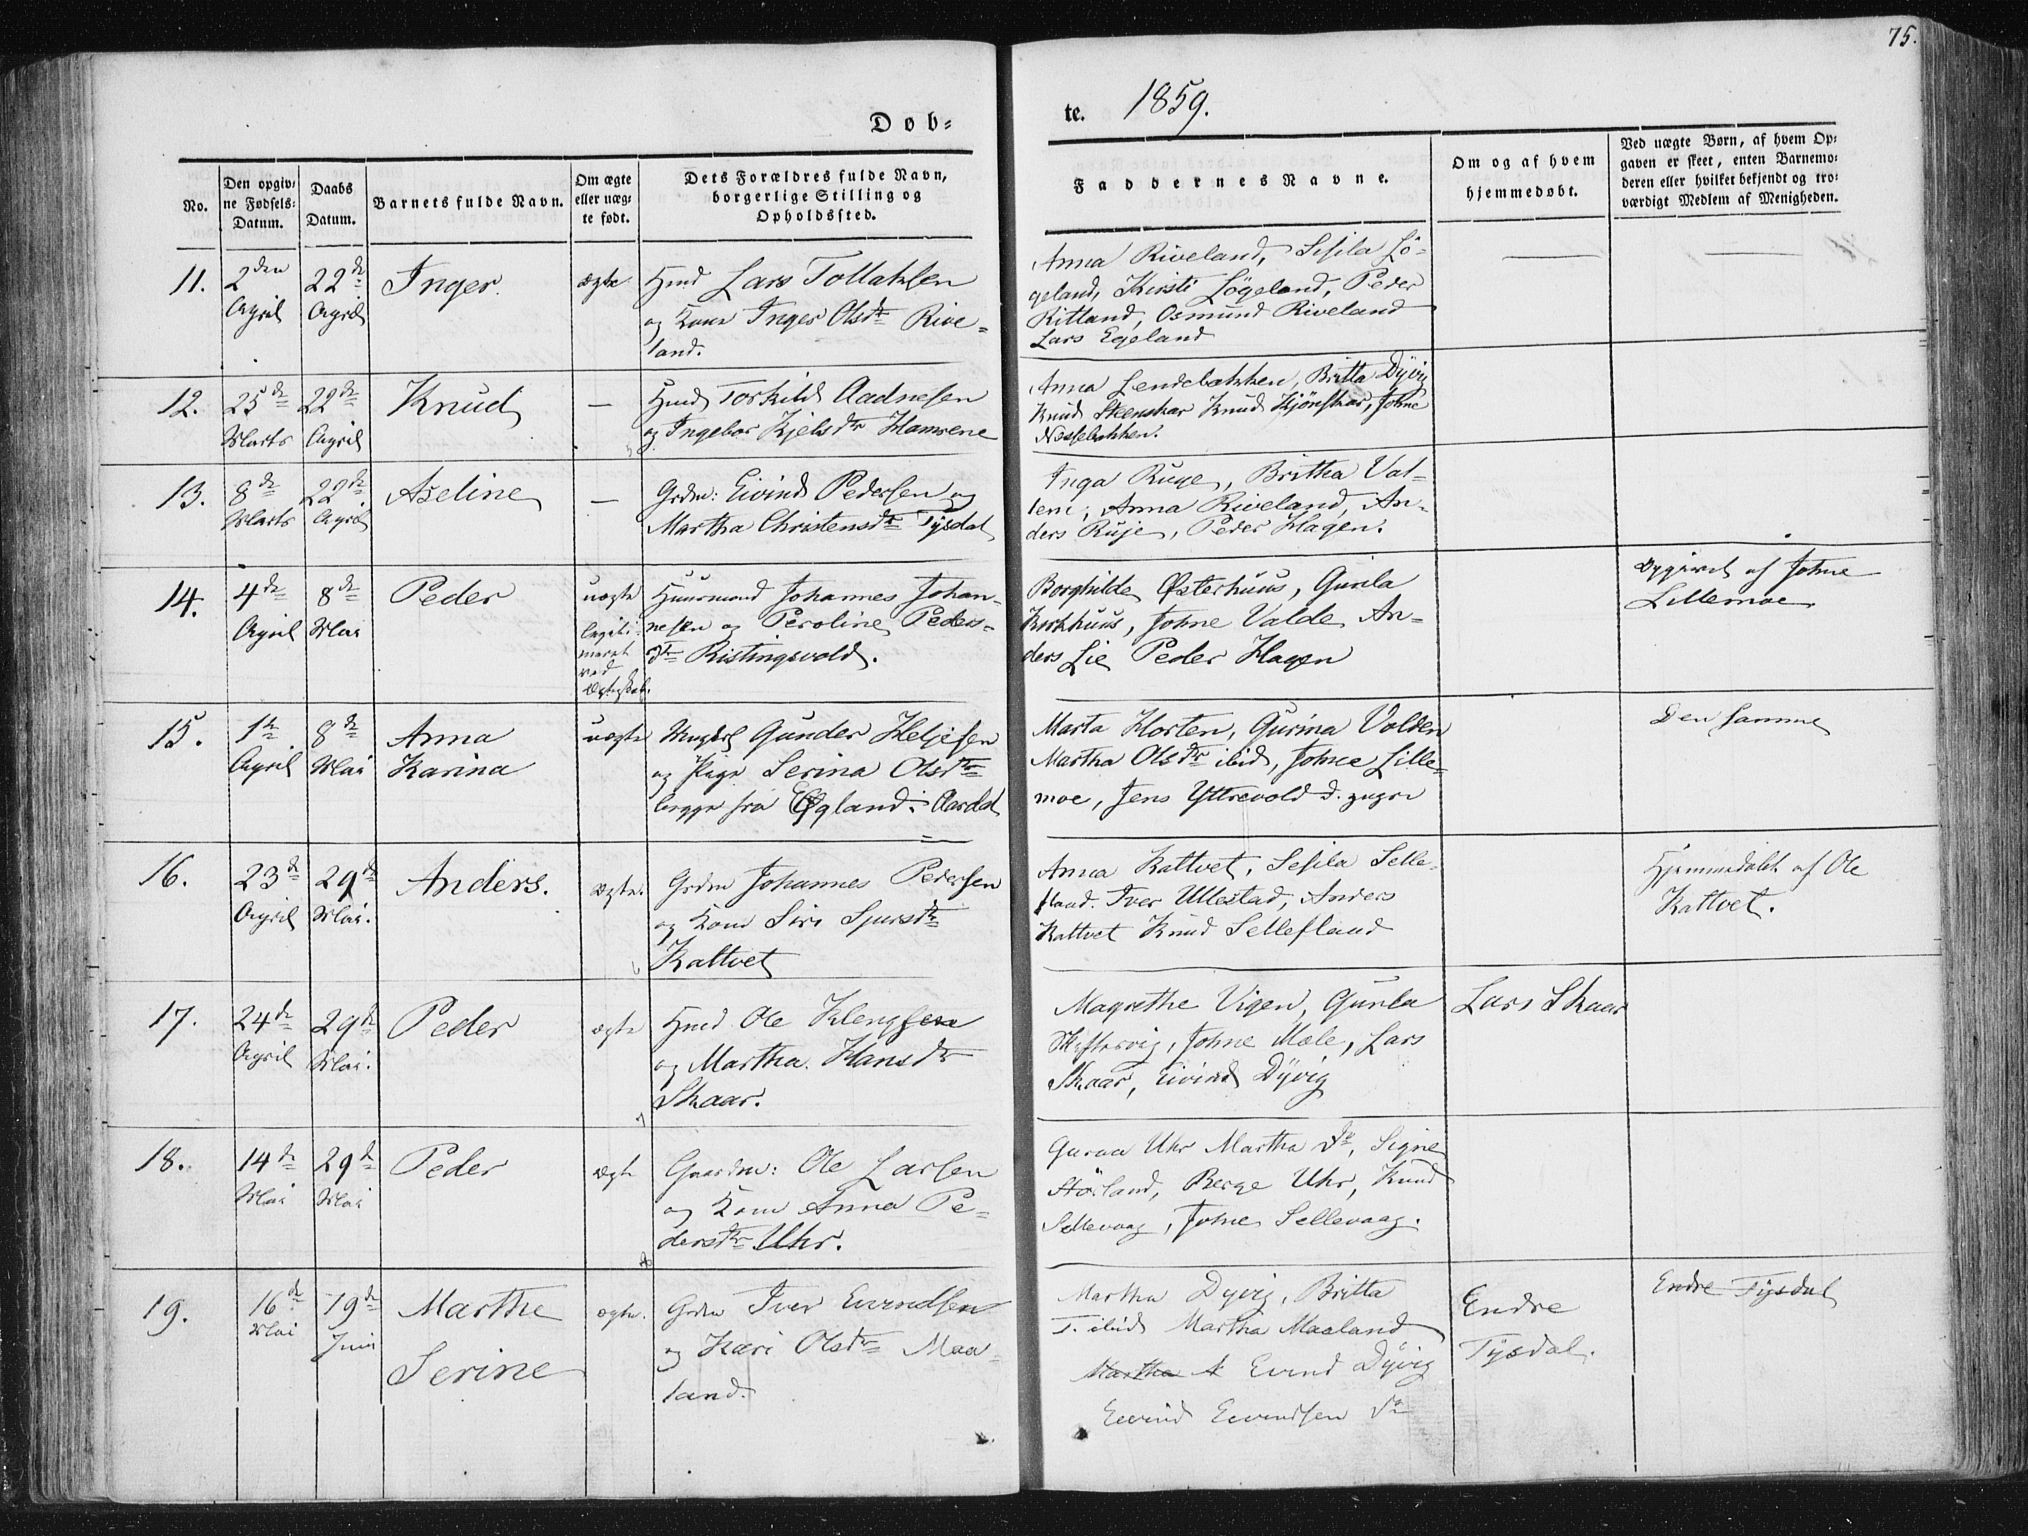 75.
Døb-
te. 1859.
No.
Den opgiv-
ne Fødsels-
Datum.
Daabs
Datum.
Barnets fulde Navn.
Om ægte
eller uæg-
te født.
Dets Forældres fulde Navn,
borgerlige Stilling og
Opholdssted.
Faddernes Navne.
Om og af hvem
hjemmedøbt.
Ved uægte Børn, af hvem Op-
gaven er skeet, enten Barnemo-
deren eller hvilket bekjendt og tro-
værdigt Medlem af Menigheden.
11.
2den
April
22de
April
Inger
ægte
Hmd Lars Tollaksen
og Kone Inger Olsdtr Rive-
land.
Anna Riveland, Sesila Lö-
geland, Kirsti Lögeland, Peder
Ritland, Osmund Riveland
Lars Egeland
12.
25de
Marts
22de
April
Knud
—
Hmd Torkild Aadnesen
og Ingebor Kjelsdtr Hamrene
Anna Lendebakken, Britta Dÿvig
Knud Steenskar Knud Kjönskar, Johne
Nessebakken.
13.
8de
Marts
22de
April
Aseline
—
Grdm: Eivind Pedersen og
Martha Christensdtr Tÿsdal
Inga Ruge, Britha Val-
lem, Anna Riveland, An-
ders Ruje, Peder Hagen.
14.
4de
April
8de
Mai
Peder
uægte
legiti-
meret
ved
Ægteskab.
Huusmand Johannes Johan-
nesen og Peroline Peders-
dtr Ristingsvold.
Borghilde Østerhuus, Gunla
Kirkhuus, Johne Valde An-
ders Lie Peder Hagen
Opgivet af Johne
Lillemoe
15.
1te
April
8de
Mai
Anna
Karina
uægte
Ungkrl Gunder Heljesen
og Pige Serina Olsdtr
begge fra Øgland i Aardal
Marta Horten, Gurina Volden
Martha Olsdtr ibid, Johne Lille-
moe, Jens Yttrevold d. yngre
Den samme
16.
23de
April
29de
Mai.
Anders.
ægte.
Grdm Johannes Pedersen
og Kone Siri Sjursdtr
Kattvet
Anna Kattvet, Sesila Selle-
fland. Iver Ullestad, Anders
Kattvet Knud Sellefland
Hjemmedøbt af Ole
Kattvet.
17.
24de
April
29de
Mai.
Peder
ægte
Hmd Ole Klengsen
og Martha Hansdtr
Skaar.
Magrethe Vigen, Gunla
Skiftesvig, Johne Mæle, Lars
Skaar, Eivind Dÿvig
Lars Skaar
18.
14de
Mai
29de
Mai
Peder
ægte
Gaardm: Ole Larsen
og Kone Anna Pe-
dersdtr Uhr.
Guroa Uhr Martha do, Signe
Störland, Berge Uhr, Knud
Sellevaag, Johne Sellevaag.
19.
16de
Mai
19de
Juni
Marthe
Serine
ægte.
Grdm Iver Eivindsen
og Kari Olsdtr Maa-
land.
Martha Dyvig, Britta
T. ibid Martha Maaland
Martha A Eivind Dÿvig
Eivind Eivindsen do
Endre
Tÿsdal.
Endre Tÿsdal